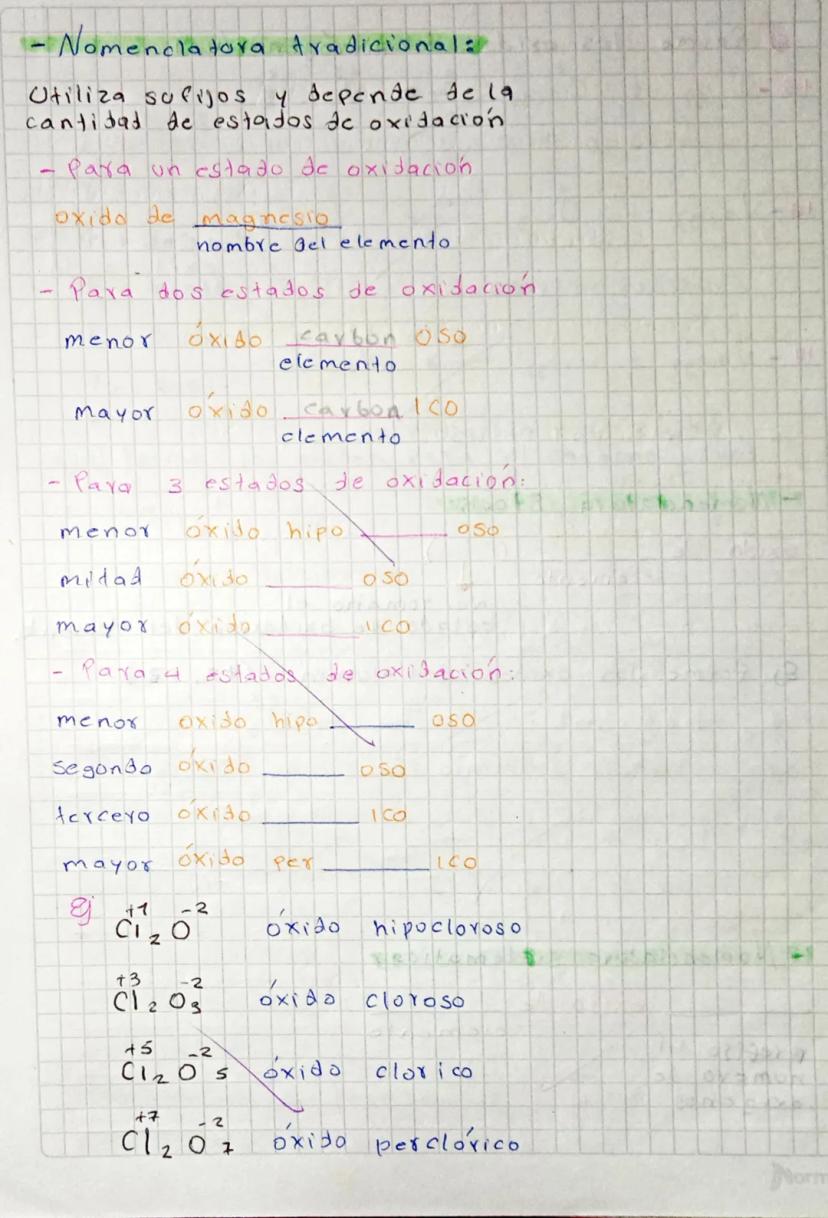 - Nomenclatura tradicional:
Utiliza sufijos y depende de la
cantidad de estados de oxidación
- Para un estado de oxidación
oxido de magnesio
nombre del elemento
- Para dos estados de oxidación
menor óxido carbon oso
elemento
mayor óxido carbon ico
elemento
- Para 3 estados de oxidación:
menor óxido hipo ______ oso
mitad óxido ______ oso
mayor óxido ______ ico
- Para 4 estados de oxidación:
menor oxido hipo ______ oso
segundo óxido ______ oso
tercero óxido ______ ico
mayor óxido per ______ ico
Ej Cl₂⁺¹ O⁻² óxido hipocloroso
Cl₂⁺³ O₃⁻² óxido cloroso
Cl₂⁺⁵ O₅⁻² óxido clorico
Cl₂⁺⁷ O₇⁻² óxido perclórico
Norm